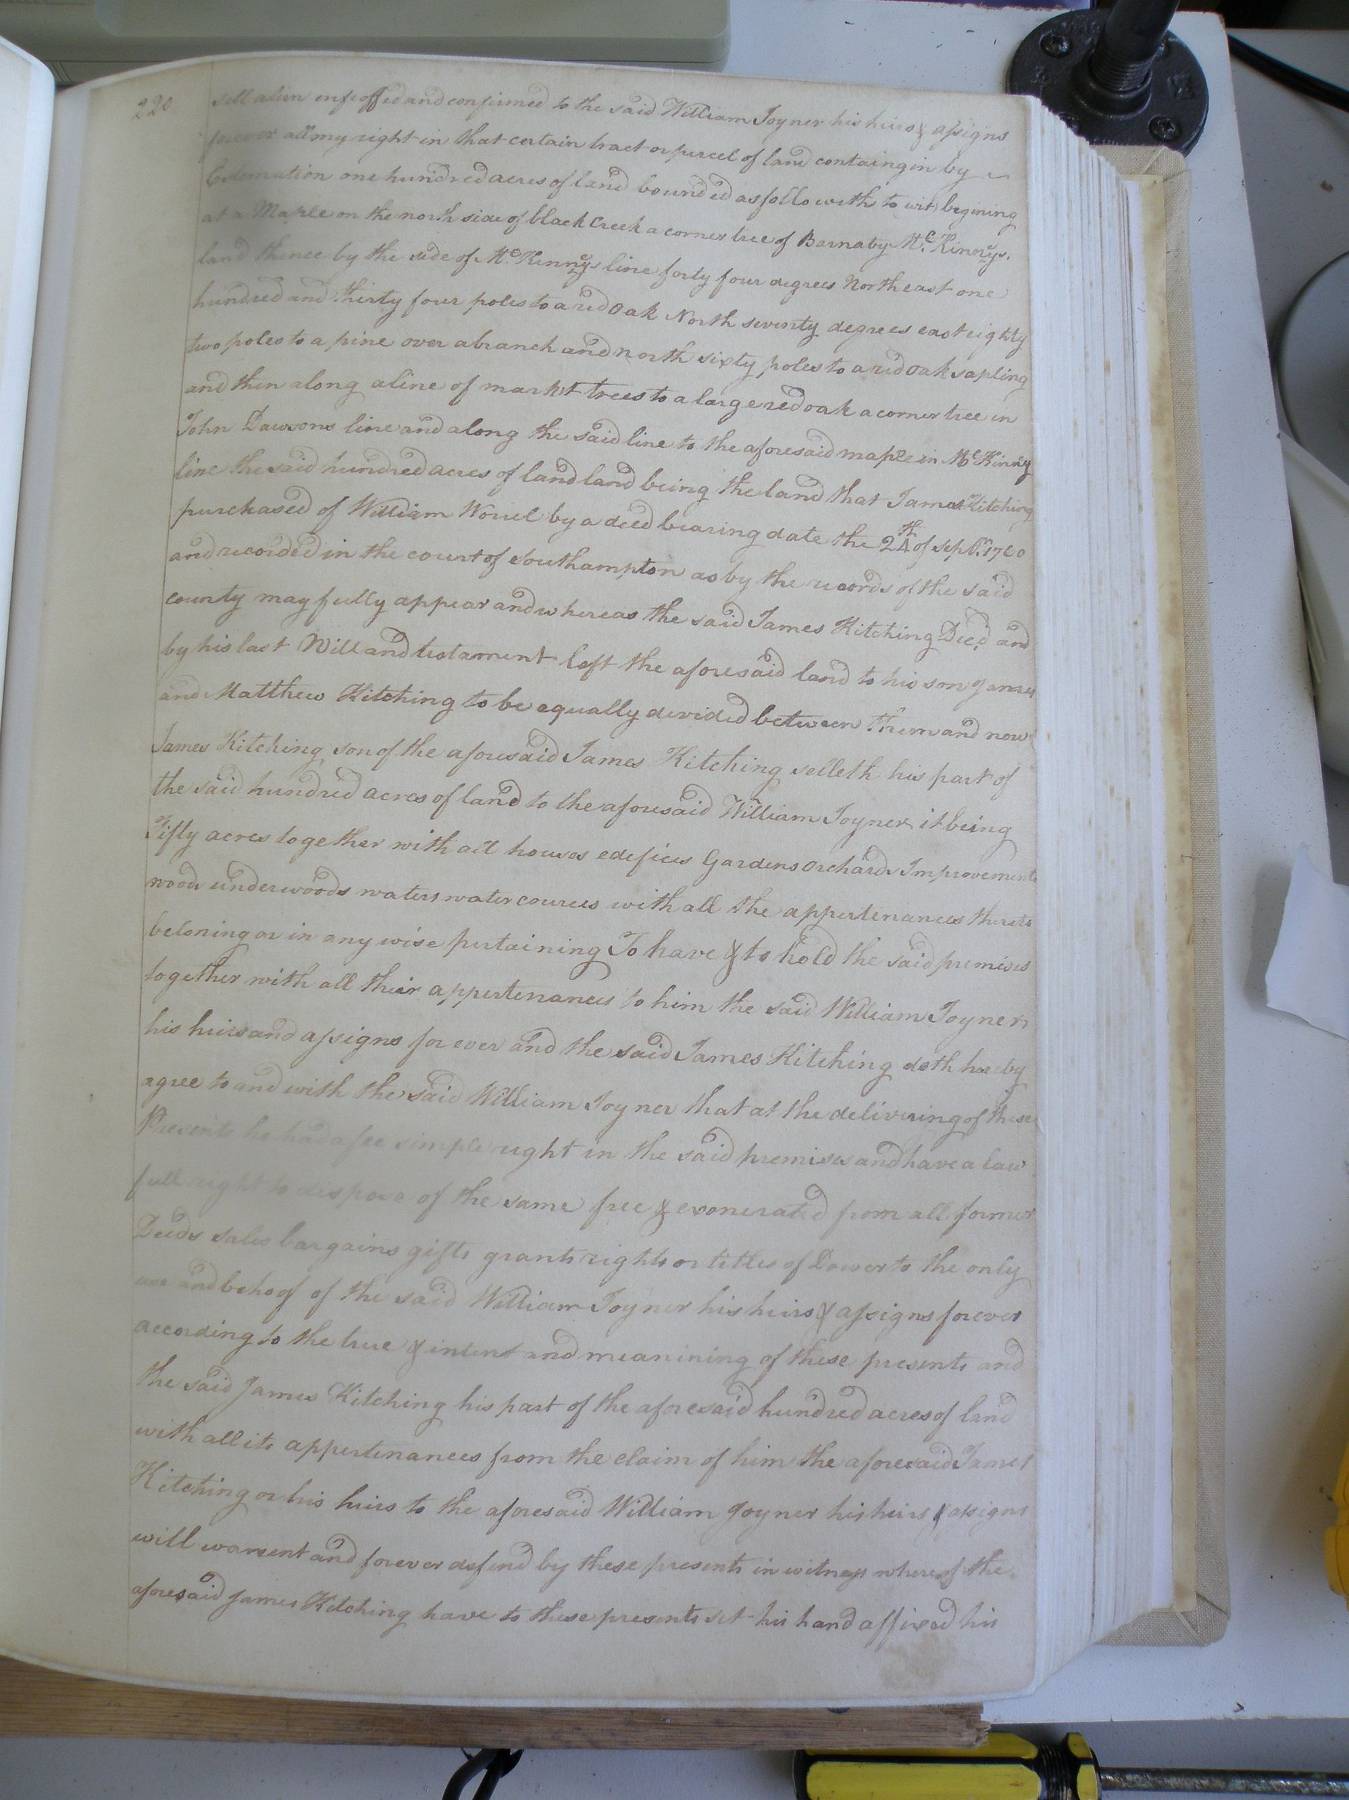 220
sell alien enfeoffed and confirmed to the said William Joyner his heirs & assigns
forever all my right in that certain tract or parcel of land containgin by
Estemation one hundred acres of land bounded as followeth to wit begining
at a Maple on the north side of black Creek a corner tree of Barnaby Mc Kinnys
land thence by the side of Mc Kinnys line forty four degrees North east one
hundred and thirty four poles to a red Oak North seventy degrees east eighty
two poles to a pine over a branch and north sixty poles to a red oak sapling
and then along a line of markt trees to a large red oak a corner tree in
John Dawsons line and along the said line to the aforesaid maple in Mc Kinny
line the said hundred acres of land land being the land that James Kitching
purchased of William Worrel by a deed bearing date the 24th of Sepbr. 1760
and recorded in the court of Southampton as by the records of the said
county may fully appear and whereas the said James Kitching Deed and
by his last Will and testament left the aforesaid land to his son James
and Matthew Kitching to be equally devided between them and now
James Kitching son of the aforesaid James Kitching selleth his part of
the said hundred acres of land to the aforesaid William Joyner it being
Fifty acres together with all houses edefices Gardens Orchards Improvements
woods underwoods waters water courses with all the appertenances thereto
beloning or in any wise pertaining To have & to hold the said premises
together with all their appertenances to him the said William Joyner
his heirs and assigns forever and the said James Kitching doth hereby
agree to and with the said William Joyner that at the delivering of these
Presents he had a fee simple right in the said premises and have a law
full right to dispose of the same free & exonerated from all former
Deeds sales bargains gifts grants rights or titles of Dower to the only
use and behoof of the said William Joyner his heirs & assigns forever
according to the true & intent and meanining of these presents and
the said James Kitching his part of the aforesaid hundred acres of land
with all its appertenances from the claim of him the aforesaid James
Kitching or his heirs to the aforesaid William Joyner his heirs & assigns
will warrent and forever defend by these presents in witness whereof the
aforesaid James Kitching have to these presents set his hand affixed his